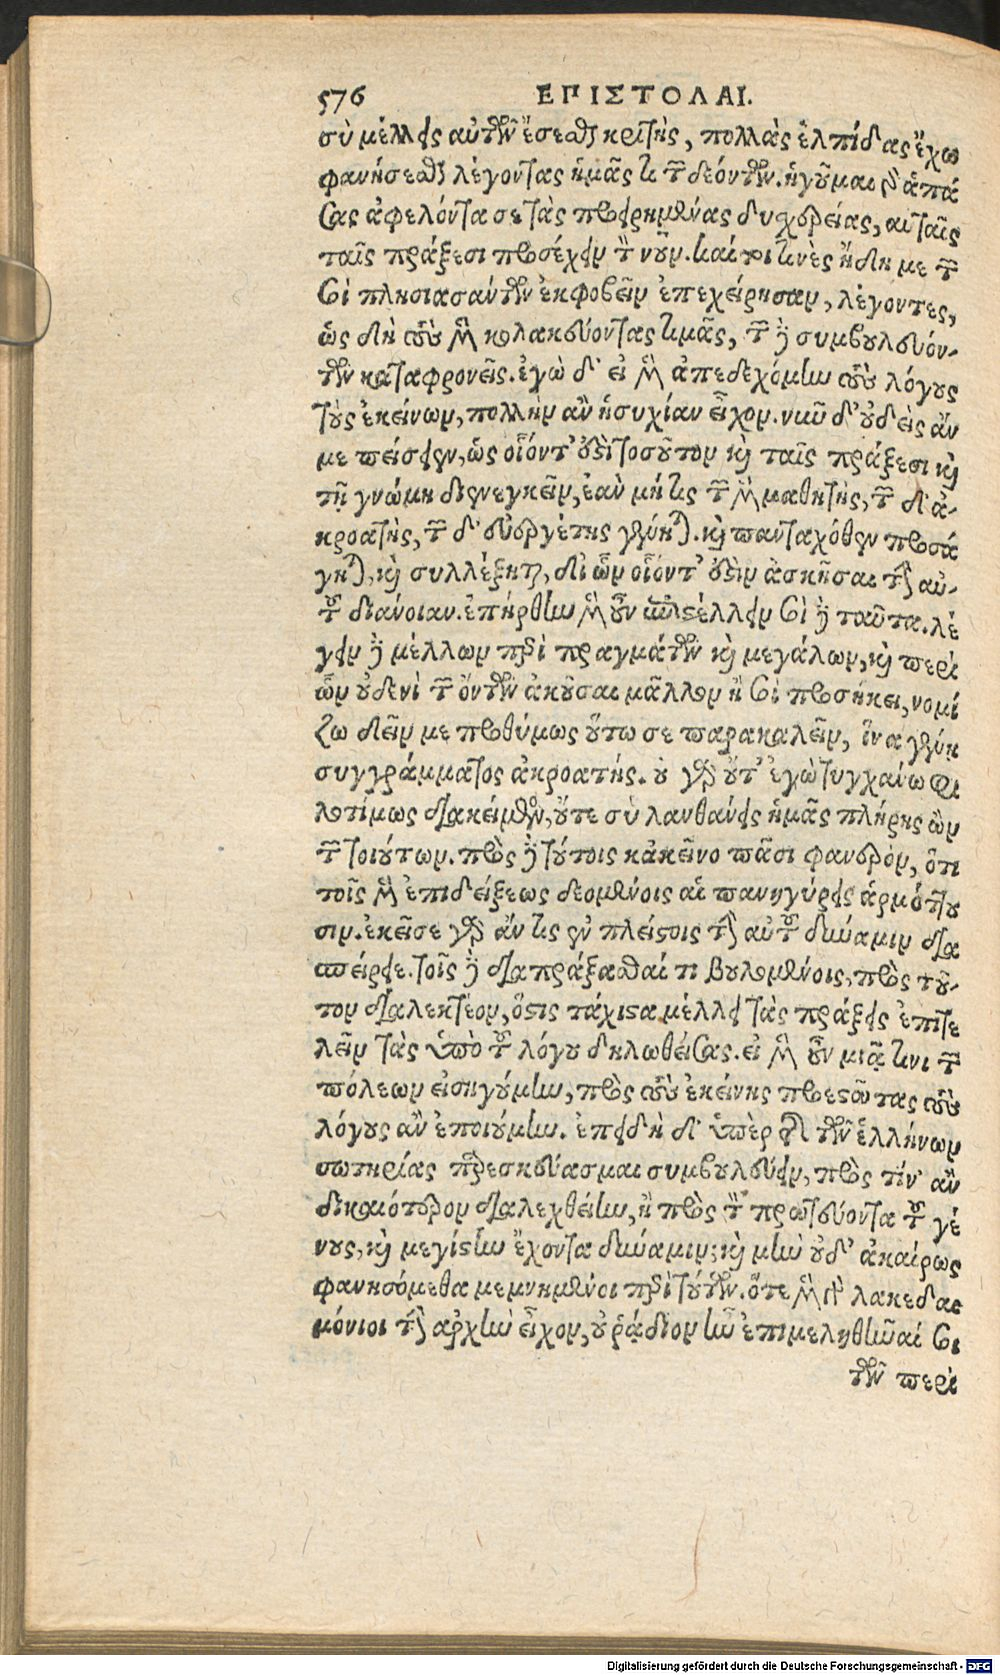 576 ΕΠΙΣΤΟΛΑΙ.
σὺ μέλλεις αὐτῶν ἔσεσθαι κριτὴς, πολλὰς ἐλπίδας ἔχω
φανήσεσθαι λέγοντας ἡμᾶς τι τῶν δεόντων. ἡγοῦμαι γὰρ ἁπά
σας ἀφελόντα σε τὰς προειρημένας δυχερείας, αὐταῖς
ταῖς πράξεσι προσέχειν τὸν νοῦν. καίτοι τινὲς ἤδη με τῶν
σοὶ πλησιασάντων ἐκφοβεῖν ἐπεχείρησαν, λέγοντες,
ὡς δὴ τοὺς μὲν κολακεύοντας τιμᾶς, τῶν δὲ συμβουλευόν-
των καταφρονεῖς. ἐγὼ δ' εἰ μὲν ἀπεδεχόμην τοὺς λόγους
τοὺς ἐκείνων, πολλὴν ἂν ἡσυχίαν εἶχον. νῦν δ' οὐδεὶς ἄν
με πείσειεν, ὡς οἷόντ' ἐστὶ τοσοῦτον καὶ ταῖς πράξεσι καὶ
τῇ γνώμη διενεγκεῖν, ἐὰν μή τις τῶν μὲν μαθητὴς, τῶν δ' ἀ-
κροατὴς, τῶν δ' εὐεργέτης γένηται. καὶ πανταχόθεν προσά
γηται, καὶ συλλέξηται, δι' ὧν οἷόντ' ἐστὶν ἀσκῆσαι τὴν αὑ-
τοῦ διάνοιαν. ἐπήρθην μὲν οὖν ἐπιστέλλειν σοὶ διὰ ταῦτα. λέ
γειν δὲ μέλλων περὶ πραγμάτων καὶ μεγάλων, καὶ περὶ
ὧν οὐδενὶ τῶν ὄντων ἀκοῦσαι μᾶλλον ἢ σοὶ προσήκει, νομί
ζω δεῖν με προθύμως οὕτω σε παρακαλεῖν, ἵνα γένῃ
συγγράμματος ἀκροατής. οὐ γὰρ οὔτ' ἐγὼ τυγχάνω φι
λοτίμως διακείμενος, οὔτε σὺ λανθάνεις ἡμᾶς πλήρης ὢν
τῶν τοιούτων. πρὸς δὲ τούτοις κἀκεῖνο πᾶσι φανερὸν, ὅτι
τοῖς μὲν ἐπιδείξεως δεομένοις αἱ πανηγύρεις ἁρμόττου
σιν. ἐκεῖσε γὰρ ἄν τις ἐν πλείστοις τὴν αὑτοῦ δύναμιν δια
σπείρειε. τοῖς δὲ διαπράξασθαί τι βουλομένοις, πρὸς τοῦ-
τον διαλεκτέον, ὅστις τάχιστα μέλλει τὰς πράξεις ἐπιτε
λεῖν τὰς ὑπὸ τοῦ λόγου δηλωθείσας. εἰ μὲν οὖν μιᾷ τινι τῶν
πόλεων εἰσηγούμην, πρὸς τοὺς ἐκείνης προεστῶτας τοὺς
λόγους ἂν ἐποιούμην. ἐπειδὴ δ' ὑπὲρ τῆς τῶν ἑλλήνων
σωτηρίας παρεσκεύασμαι συμβουλεύειν, πρὸς τίν' ἂν
δικαιότερον διαλεχθείην, ἢ πρὸς τὸν πρωτεύοντα τοῦ γέ
νους, καὶ μεγίστην ἔχοντα δύναμιν; καὶ μὴν οὐδ' ἀκαίρως
φανησόμεθα μεμνημένοι περὶ τούτων. ὅτε μὲν γὰρ λακεδαι
μόνιοι τὴν ἀρχὴν εἶχον, οὐ ῥᾴδιον ἦν ἐπιμεληθῆναί σοι
τῶν περὶ
Digitalisierung gefördert durch die Deutsche Forschungsgemeinschaft - DFG